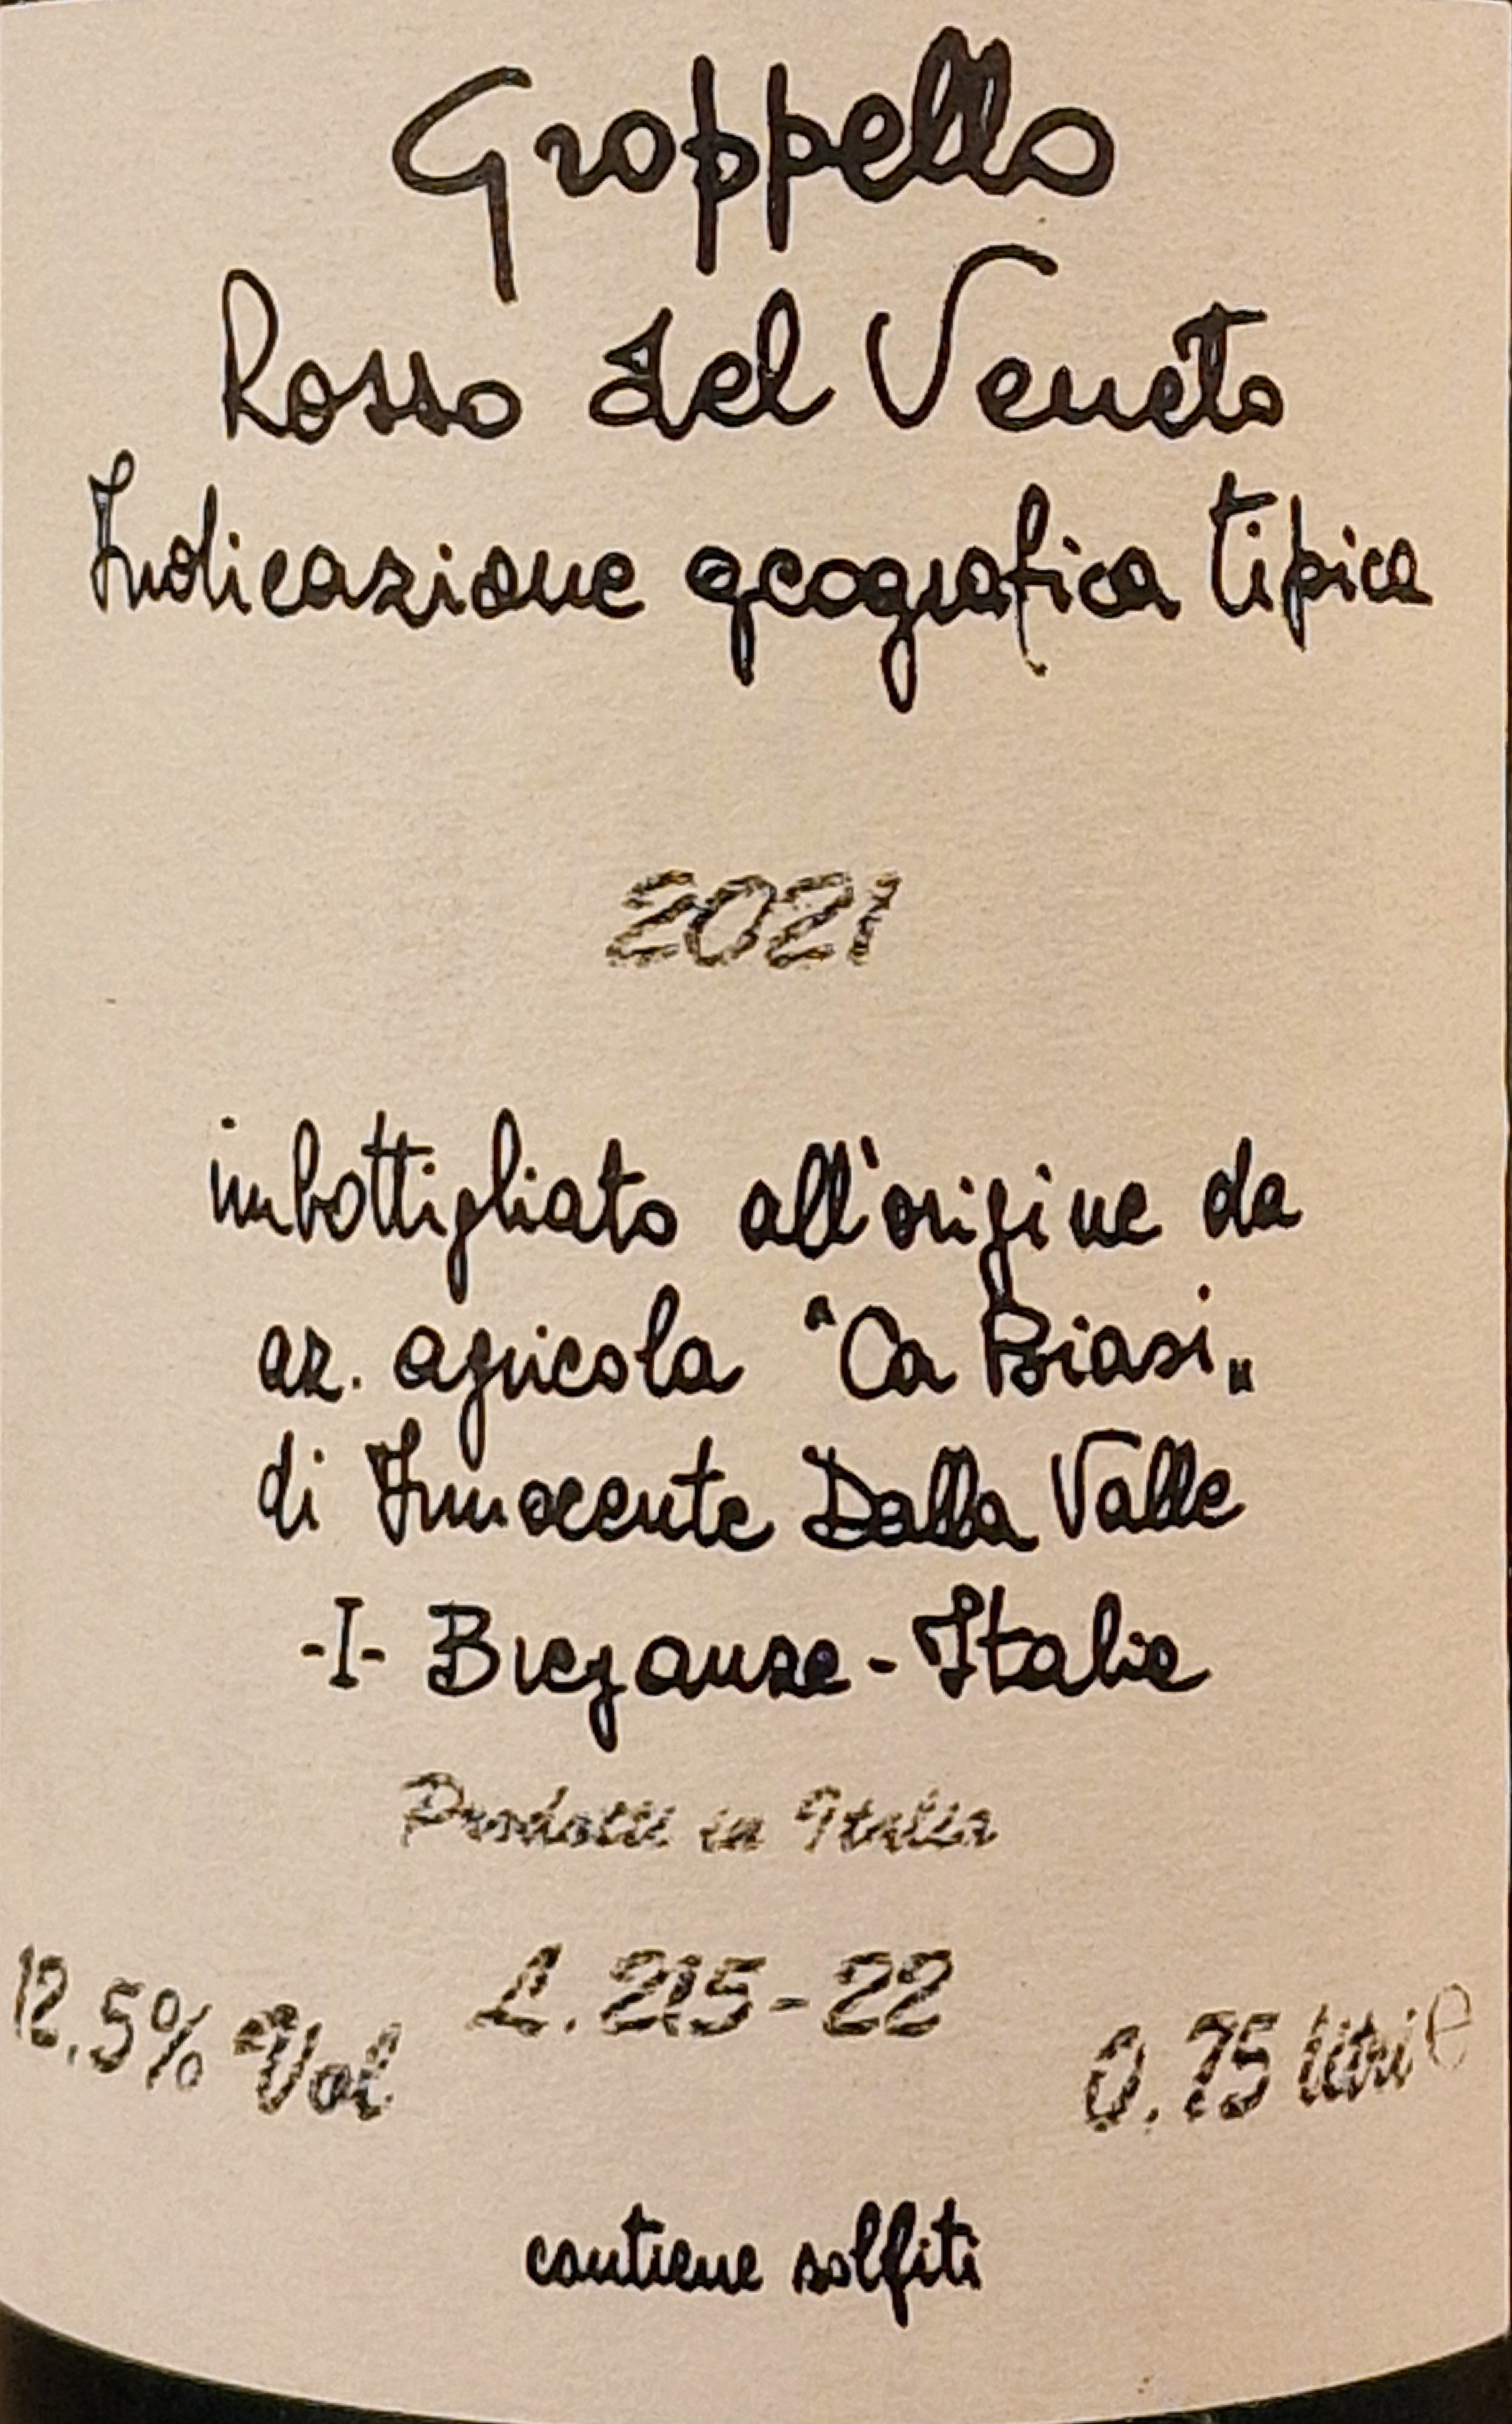 Groppello
Rosso del Veneto
Indicazione geografica tipica
2021
imbottigliato all'origine da
az. agricola "Ca Biasi„
di Innocente Dalla Valle
-I- Breganze - Italia
Prodotto in Italia
12.5% Vol
L. 215-22
0.75 litri e
contiene solfiti